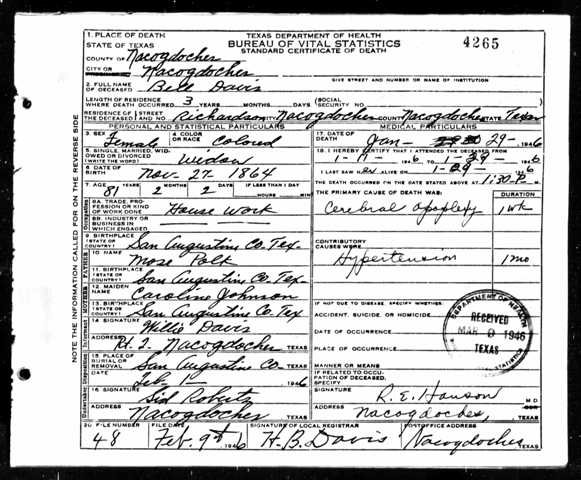 1. PLACE OF DEATH
STATE OF TEXAS
TEXAS DEPARTMENT OF HEALTH
BUREAU OF VITAL STATISTICS
STANDARD CERTIFICATE OF DEATH
4265
COUNTY OF Nacogdoches
CITY OR Nacogdoches
GIVE STREET AND NUMBER OR NAME OF INSTITUTION
2. FULL NAME OF DECEASED Bell Davis
LENGTH OF RESIDENCE WHERE DEATH OCCURRED 3 YEARS MONTHS DAYS (SOCIAL SECURITY NO.
RESIDENCE OF THE DECEASED STREET AND NO. Richardson CITY Nacogdoches COUNTY Nacogdoches STATE Texas
PERSONAL AND STATISTICAL PARTICULARS
MEDICAL PARTICULARS
3. SEX Female
4. COLOR OR RACE Colored
17. DATE OF DEATH Jan- 29- 1946
5. SINGLE, MARRIED, WIDOWED OR DIVORCED (WRITE THE WORD) Widow
18. I HEREBY CERTIFY THAT I ATTENDED THE DECEASED FROM
1946 TO 1-29- 1946
6. DATE OF BIRTH Nov- 27- 1864
I LAST SAW ALIVE ON 1-29- 1946
7. AGE 81 YEARS 2 MONTHS 2 DAYS IF LESS THAN 1 DAY HOURS MIN
THE DEATH OCCURRED ON THE DATE STATED ABOVE AT 11:30 P. M
THE PRIMARY CAUSE OF DEATH WAS: DURATION
8A. TRADE, PROFESSION OR KIND OF WORK DONE House Work
Cerebral Apoplexy 1 wk
8B. INDUSTRY OR BUSINESS IN WHICH ENGAGED
9. BIRTHPLACE (STATE OR COUNTRY) San Augustine Co. Tex.
CONTRIBUTORY CAUSES WERE
10. NAME Mose Polk
Hypertension 1 mo
11. BIRTHPLACE (STATE OR COUNTRY) San Augustine Co. Tex-
12. MAIDEN NAME Caroline Johnson
13. BIRTHPLACE (STATE OR COUNTRY) San Augustine Co. Tex
IF NOT DUE TO DISEASE, SPECIFY WHETHER:
ACCIDENT, SUICIDE, OR HOMICIDE
14. SIGNATURE Willie Davis
DATE OF OCCURRENCE
ADDRESS Nacogdoches TEXAS
PLACE OF OCCURRENCE
15. PLACE OF BURIAL OR REMOVAL San Augustine Co TEXAS
MANNER OR MEANS
DATE Feb- 1- 1946
IF RELATED TO OCCUPATION OF DECEASED, SPECIFY
16. SIGNATURE Sid Roberts
SIGNATURE R. E. Hanson M D
ADDRESS Nacogdoches TEXAS
ADDRESS Nacogdoches, TEXAS
20. FILE NUMBER 48
FILE DATE Feb. 9th 1946
SIGNATURE OF LOCAL REGISTRAR H. B. Davis
POSTOFFICE ADDRESS Nacogdoches TEXAS
DEPARTMENT OF HEALTH
RECEIVED
1946
TEXAS
STATISTICS
NOTE THE INFORMATION CALLED FOR ON THE REVERSE SIDE
FATHER
MOTHER